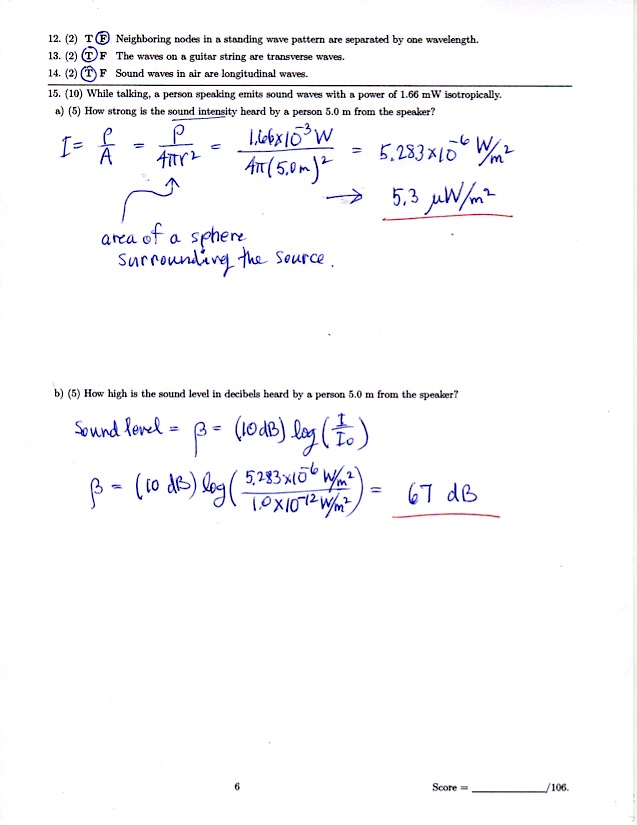 12. (2) T F Neighboring nodes in a standing wave pattern are separated by one wavelength.
13. (2) T F The waves on a guitar string are transverse waves.
14. (2) T F Sound waves in air are longitudinal waves.
15. (10) While talking, a person speaking emits sound waves with a power of 1.66 mW isotropically.
a) (5) How strong is the sound intensity heard by a person 5.0 m from the speaker?
I = P/A = P/4πr² = 1.66×10⁻³ W/4π(5.0m)² = 5.283×10⁻⁶ W/m²
→ 5.3 μW/m²
area of a sphere
surrounding the source.
b) (5) How high is the sound level in decibels heard by a person 5.0 m from the speaker?
Sound level = β = (10dB) log(I/I₀)
β = (10 dB) log(5.283×10⁻⁶ W/m²/1.0×10⁻¹² W/m²) = 67 dB
6 Score = /106.